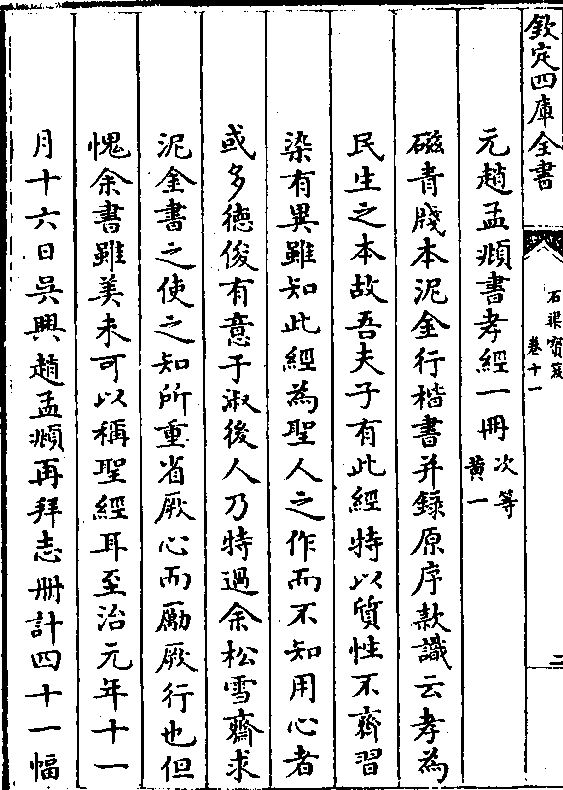 欽定四庫全書
石渠寳笈
卷十一
二
元趙孟頫書孝經一冊
次等
黄一
磁青牋本泥金行楷書并錄原序款識云孝為
民生之本故吾夫子有此經特以質性不齊習
染有異雖知此經為聖人之作而不知用心者
或多德俊有意于淑後人乃特過余松雪齋求
泥金書之使之知所重省厥心而勵厥行也但
愧余書雖美未可以稱聖經耳至治元年十一
月十六日吳興趙孟頫再拜志冊計四十一幅